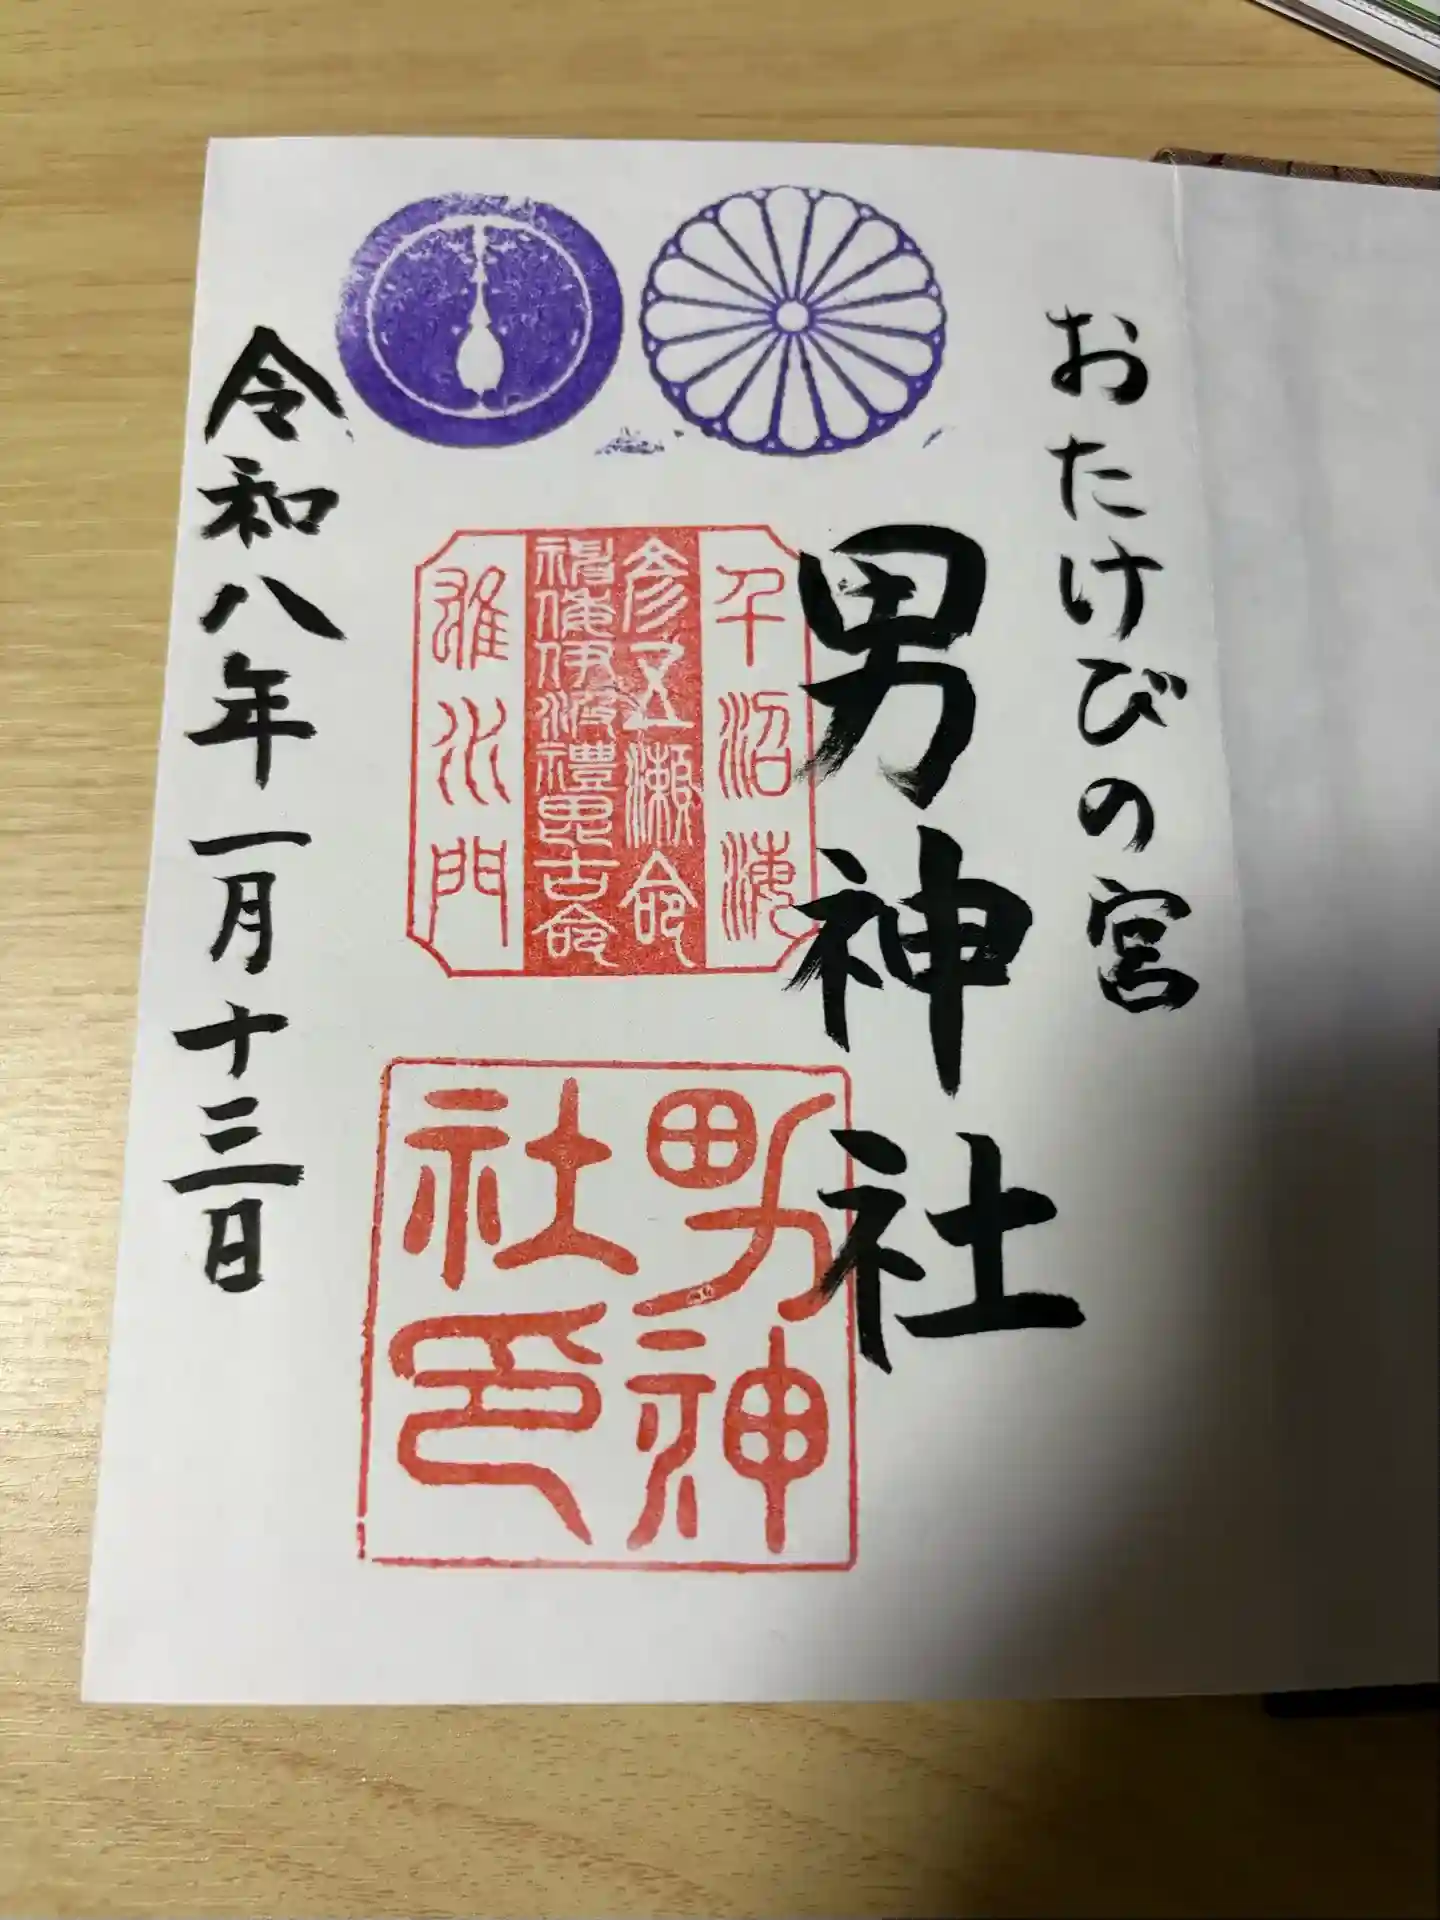 おたけびの宮
男神社
令和八年一月十三日
千沼海
彦五瀬命
神倭伊波禮毘古命
雄水門
男神
社印